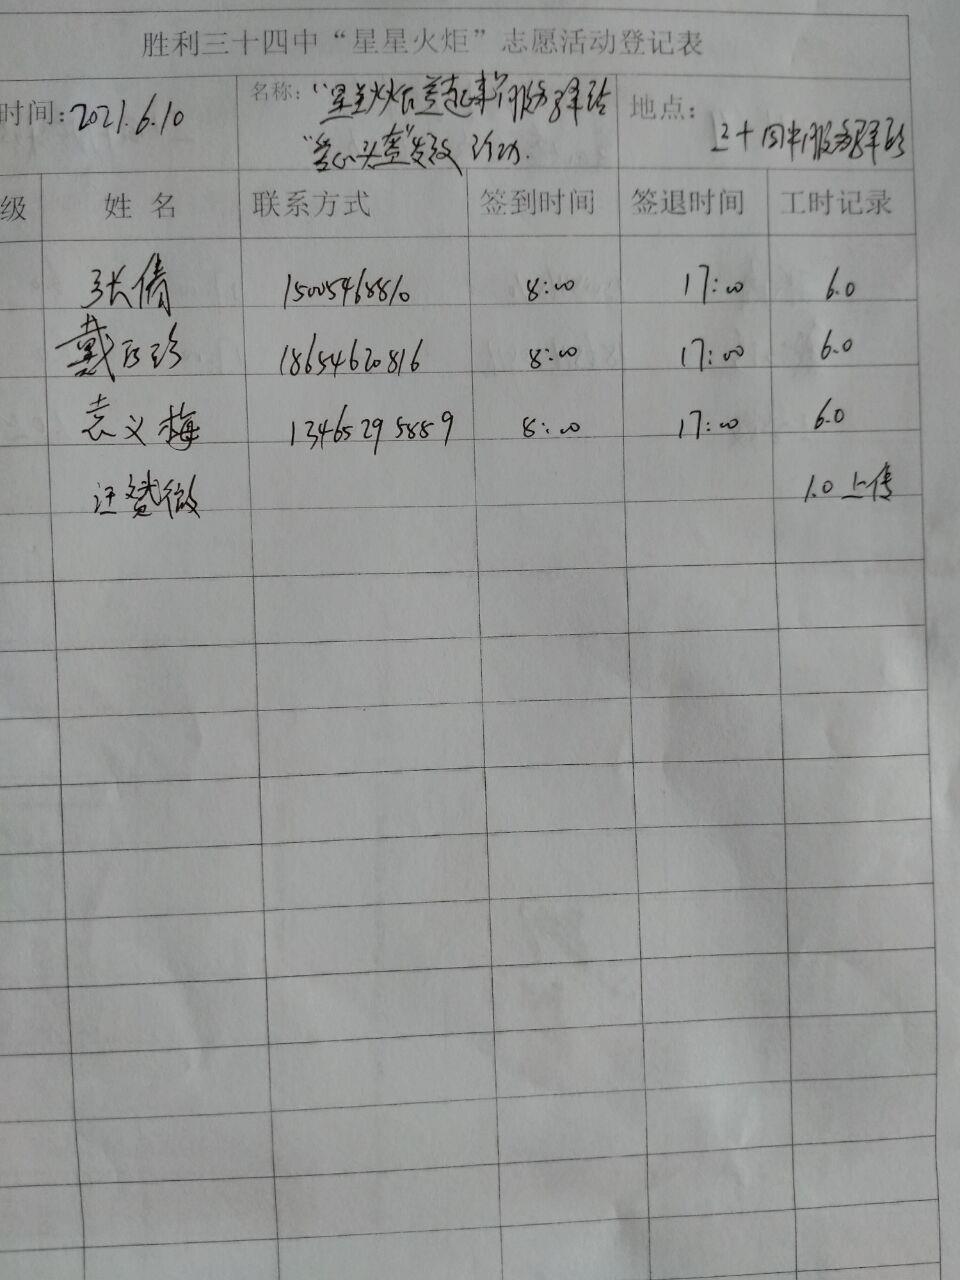 胜利三十四中“星星火炬”志愿活动登记表
时间: 2021.6.10 名称: “星星火炬 起来”服务驿站 地点:
“爱心头盔”发放 活动. 三十四中服务驿站
级 姓名 联系方式 签到时间 签退时间 工时记录
张倩 15005468810 8:00 17:00 6.0
戴 珍 18654620816 8:00 17:00 6.0
袁义梅 13465295889 8:00 17:00 6.0
汪赟微 1.0 上传